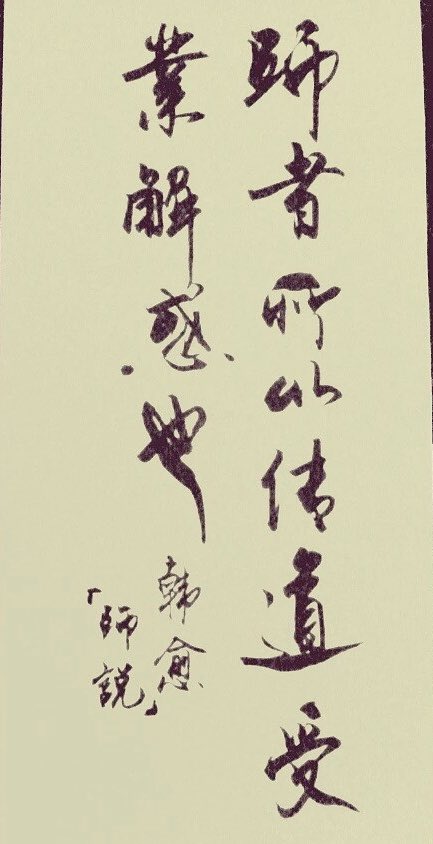 師者所以傳道受
業解惑也
韓愈
「師説」